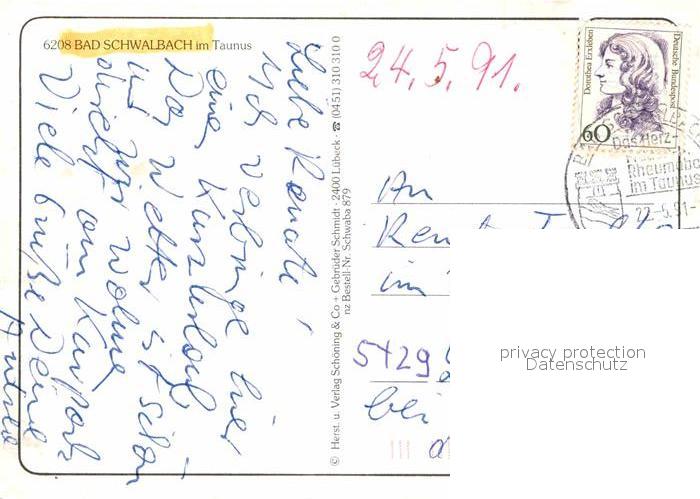 6208 BAD SCHWALBACH im Taunus
Liebe Renate!
Ich verbringe hier
einen Kurzurlaub
Das Wetter ist schön
und ich wohne
direkt am Kurpark
Viele Grüße Deine
© Herst. u. Verlag Schöning & Co + Gebrüder Schmidt · 2400 Lübeck · ☎ (0451) 310 310 0
nz Bestell-Nr. Schwaba 879
24.5.91.
Dorothea Erxleben
Deutsche Bundespost
60
Das Herz-
Rheumaba
im Taunus
22.-5.91-
An
Ren
im
5429
bei
privacy protection
Datenschutz